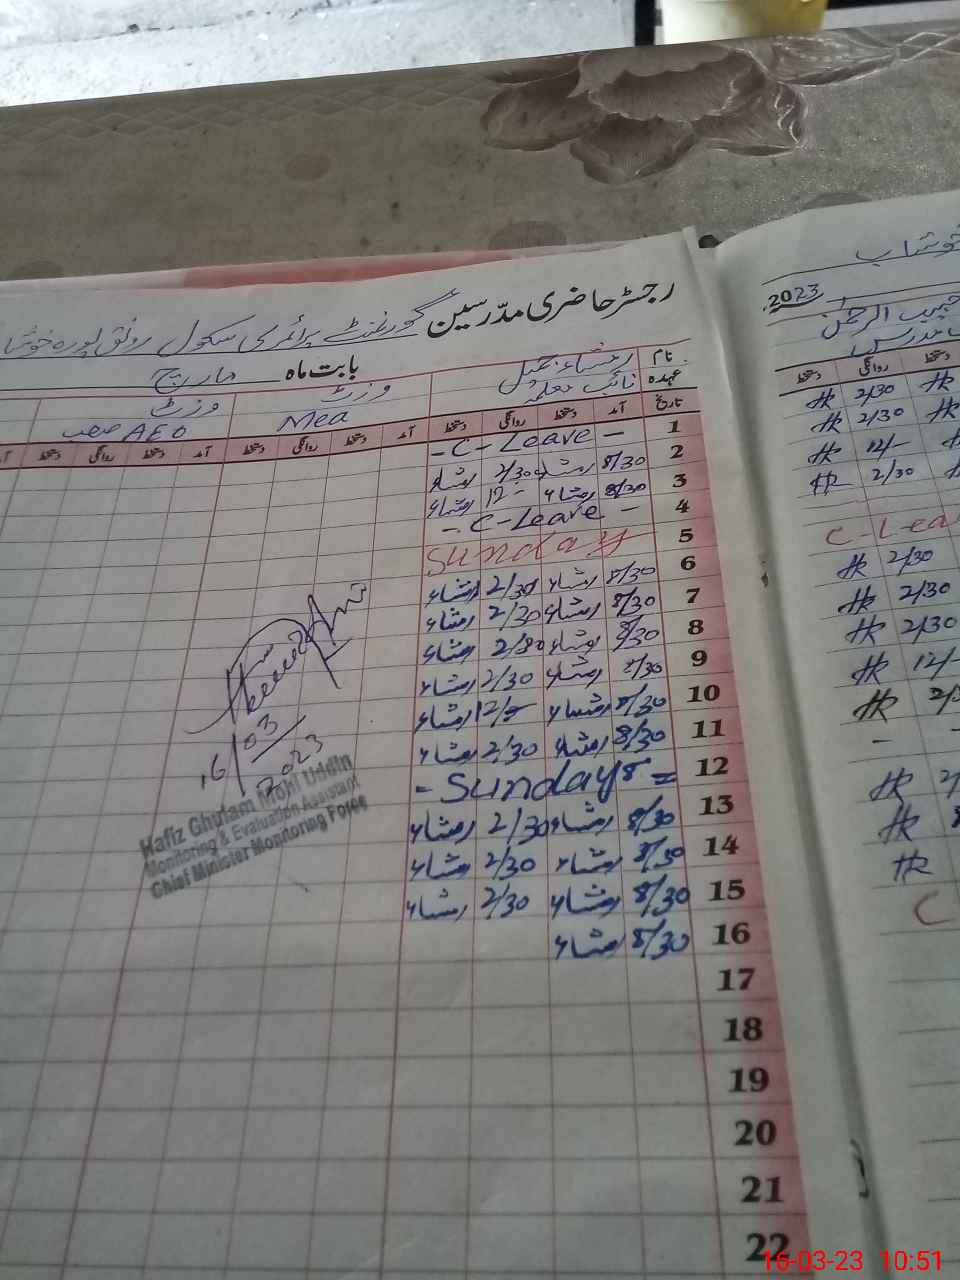 رجسٹر حاضری مدرسین گورنمنٹ پرائمری سکول رونق پورہ خوشاب
بابت ماہ مارچ
نام
عہدہ نائب معلمہ
وزٹ Mea
وزٹ AEO صاحب
تاریخ آمد دستخط روانگی دستخط آمد دستخط روانگی دستخط آمد دستخط روانگی دستخط
1 - C-Leave -
2 8/30 رمشاء 2/30 رمشاء
3 8/30 رمشاء 12 - رمشاء
4 - C-Leave -
5 Sunday
6 8/30 رمشاء 2/30 رمشاء
7 8/30 رمشاء 2/30 رمشاء
8 8/30 رمشاء 2/30 رمشاء
9 8/30 رمشاء 2/30 رمشاء
10 8/30 رمشاء 12/- رمشاء
11 8/30 رمشاء 2/30 رمشاء
12 - Sunday =
13 8/30 رمشاء 2/30 رمشاء
14 8/30 رمشاء 2/30 رمشاء
15 8/30 رمشاء 2/30 رمشاء
16 8/30 رمشاء
17
18
19
20
21
22
16/03
2023
Hafiz Ghulam Mohi Uddin
Monitoring & Evaluation Assistant
Chief Minister Monitoring Force
خوشاب
2023
حبیب الرحمٰن
دستخط روانگی دستخط
HR 2/30 HR
HR 2/30 HR
HR 12/-
HR 2/30
C-Lea
HR 2/30
HR 2/30
HR 2/30
HR 12/-
HR
- -
HR
HR
HR
C
16-03-23 10:51